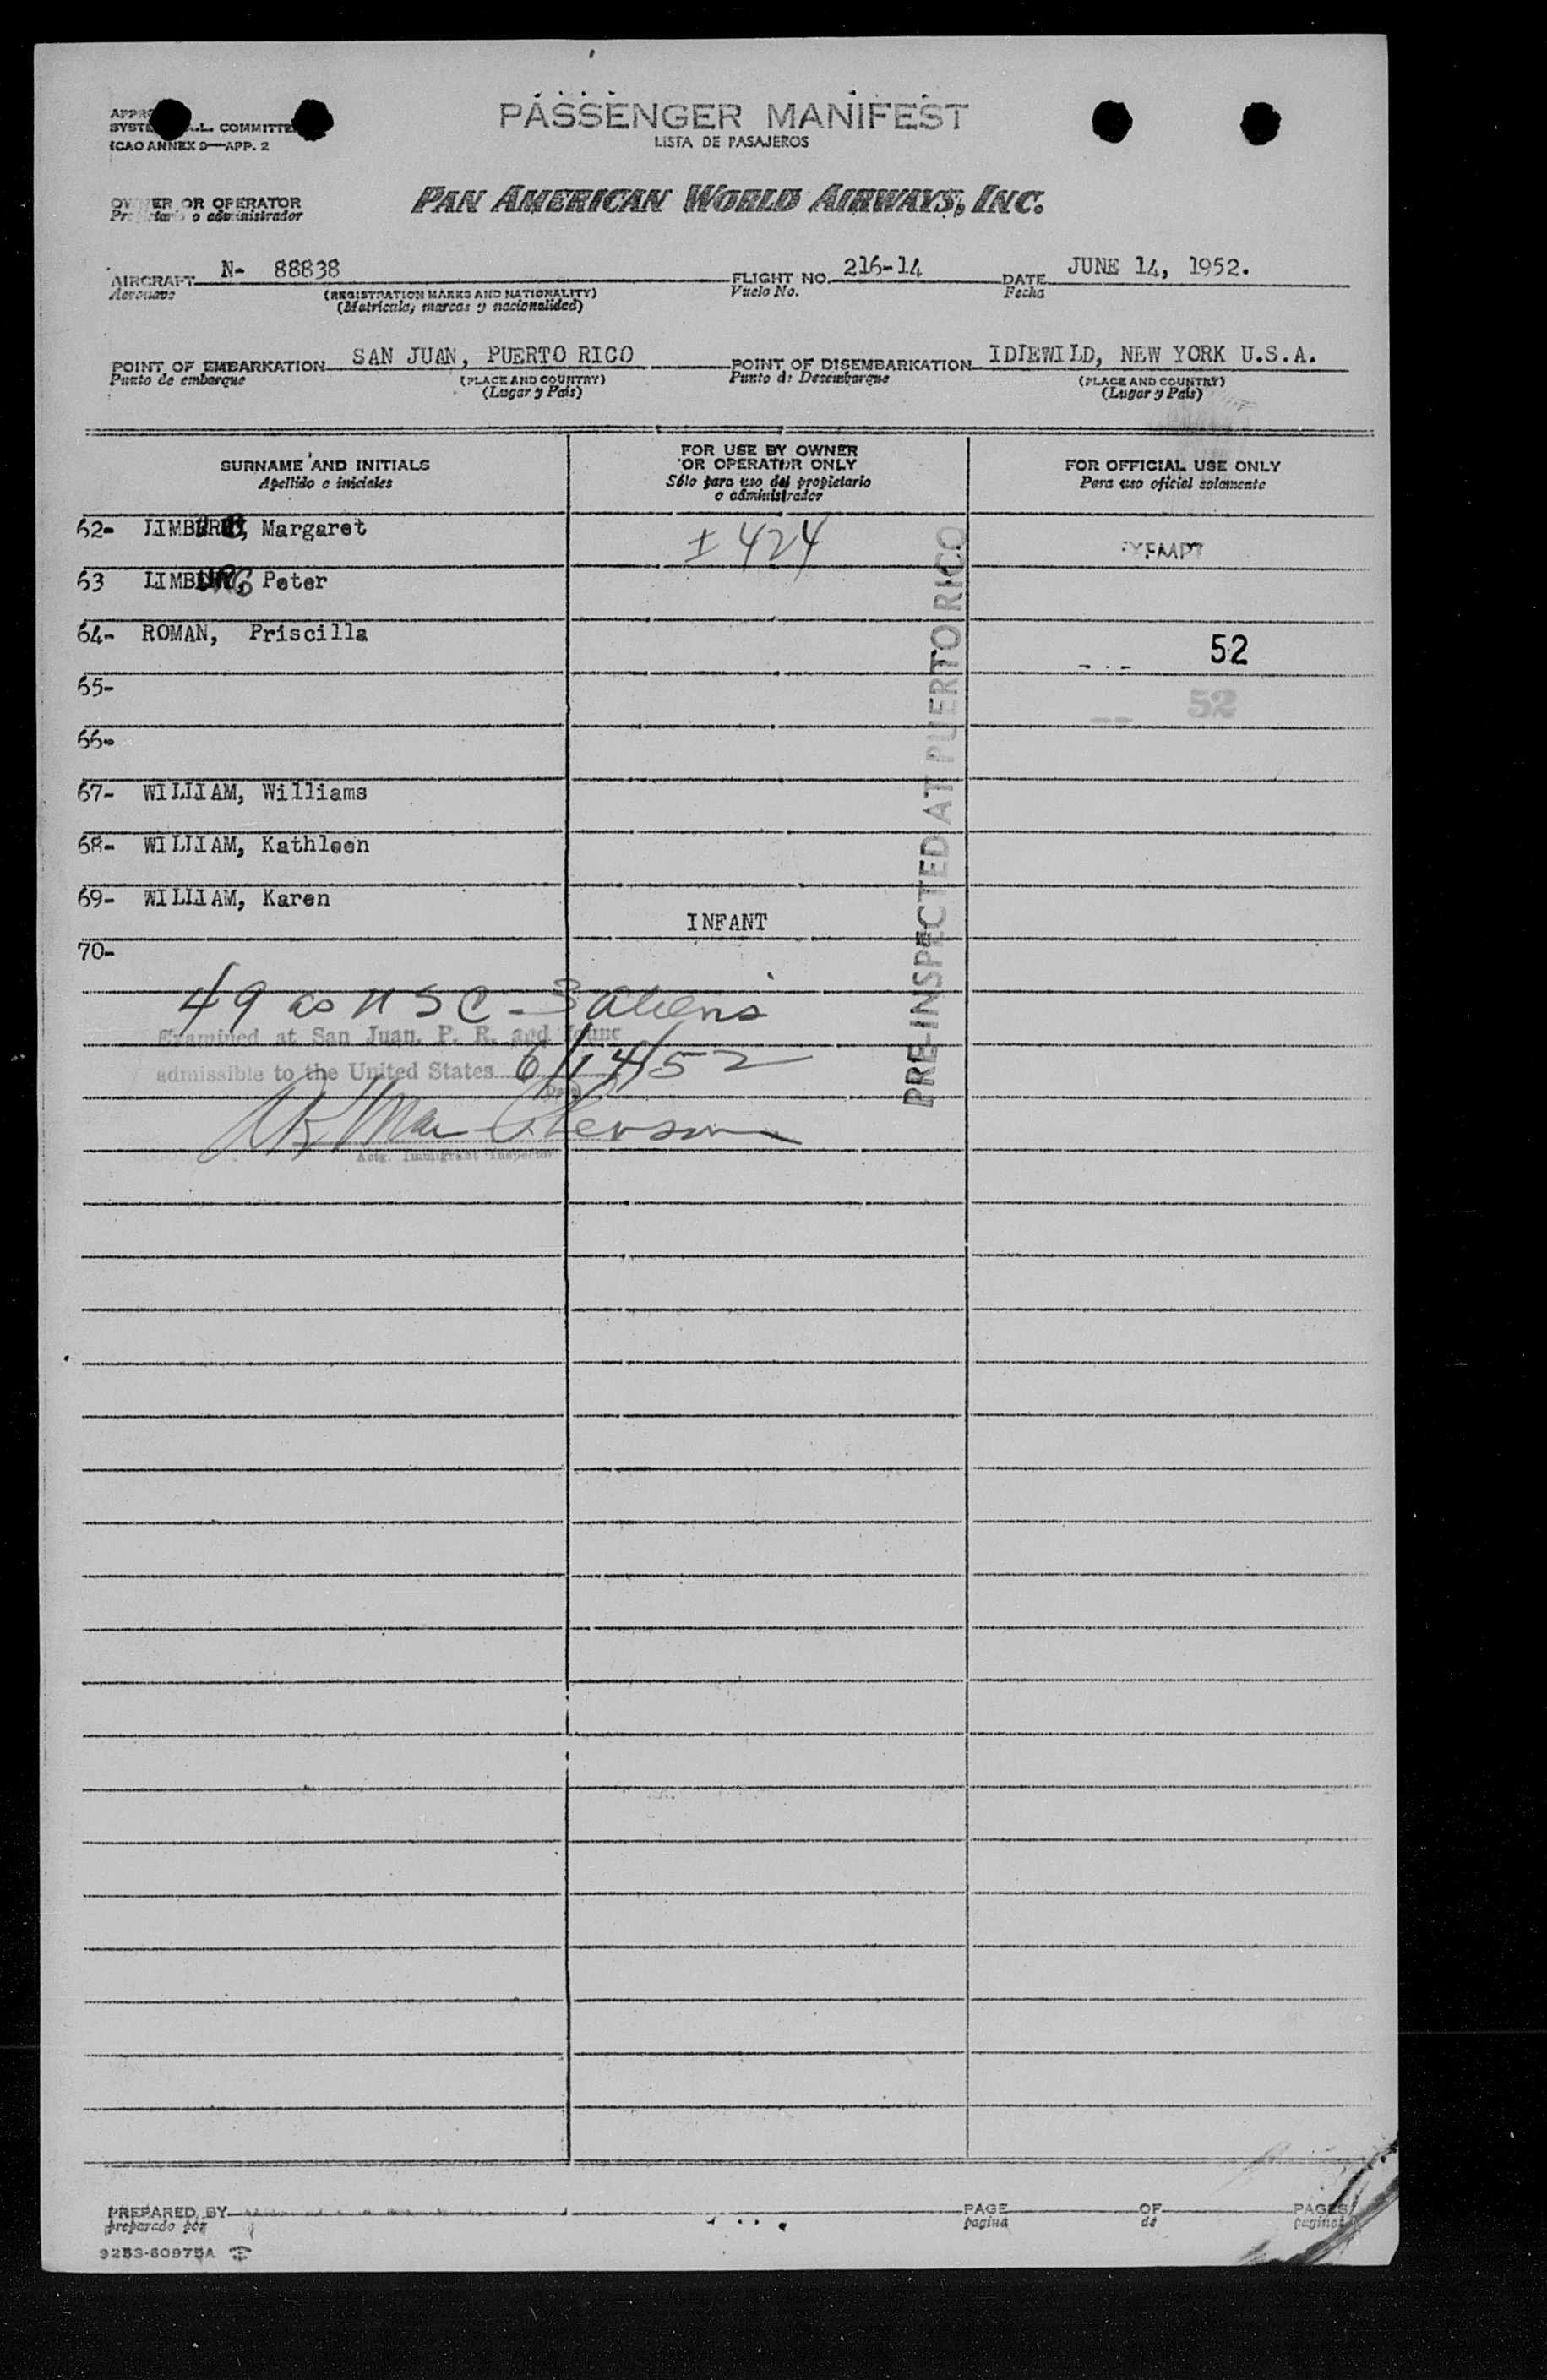 PASSENGER MANIFEST
LISTA DE PASAJEROS
COMMITTEE
ICAO ANNEX 9—APP. 2
OWNER OR OPERATOR
Propietario o administrador
PAN AMERICAN WORLD AIRWAYS, INC.
AIRCRAFT N- 88838 FLIGHT NO. 216-14 DATE JUNE 14, 1952.
Aeronave (REGISTRATION MARKS AND NATIONALITY) Vuelo No. Fecha
(Matricula, marcas y nacionalidad)
POINT OF EMBARKATION SAN JUAN, PUERTO RICO POINT OF DISEMBARKATION IDLEWILD, NEW YORK U.S.A.
Punto de embarque (PLACE AND COUNTRY) Punto de Desembarque (PLACE AND COUNTRY)
(Lugar y País) (Lugar y País)
SURNAME AND INITIALS
Apellido e iniciales
FOR USE BY OWNER
OR OPERATOR ONLY
Sólo para uso del propietario
o administrador
FOR OFFICIAL USE ONLY
Para uso oficial solamente
62- LIMBURG, Margaret ± 424
63 LIMBURG, Peter
64- ROMAN, Priscilla 52
65- 52
66-
67- WILLIAM, Williams
68- WILLIAM, Kathleen
69- WILLIAM, Karen INFANT
70-
PRE-INSPECTED AT PUERTO RICO
49 as USC - 3 aliens
Examined at San Juan, P. R. and found
admissible to the United States 6/14/52
(Date)
Actg. Immigrant Inspector
PREPARED BY PAGE OF PAGES
preparado por pagina de paginas
9253-60975A